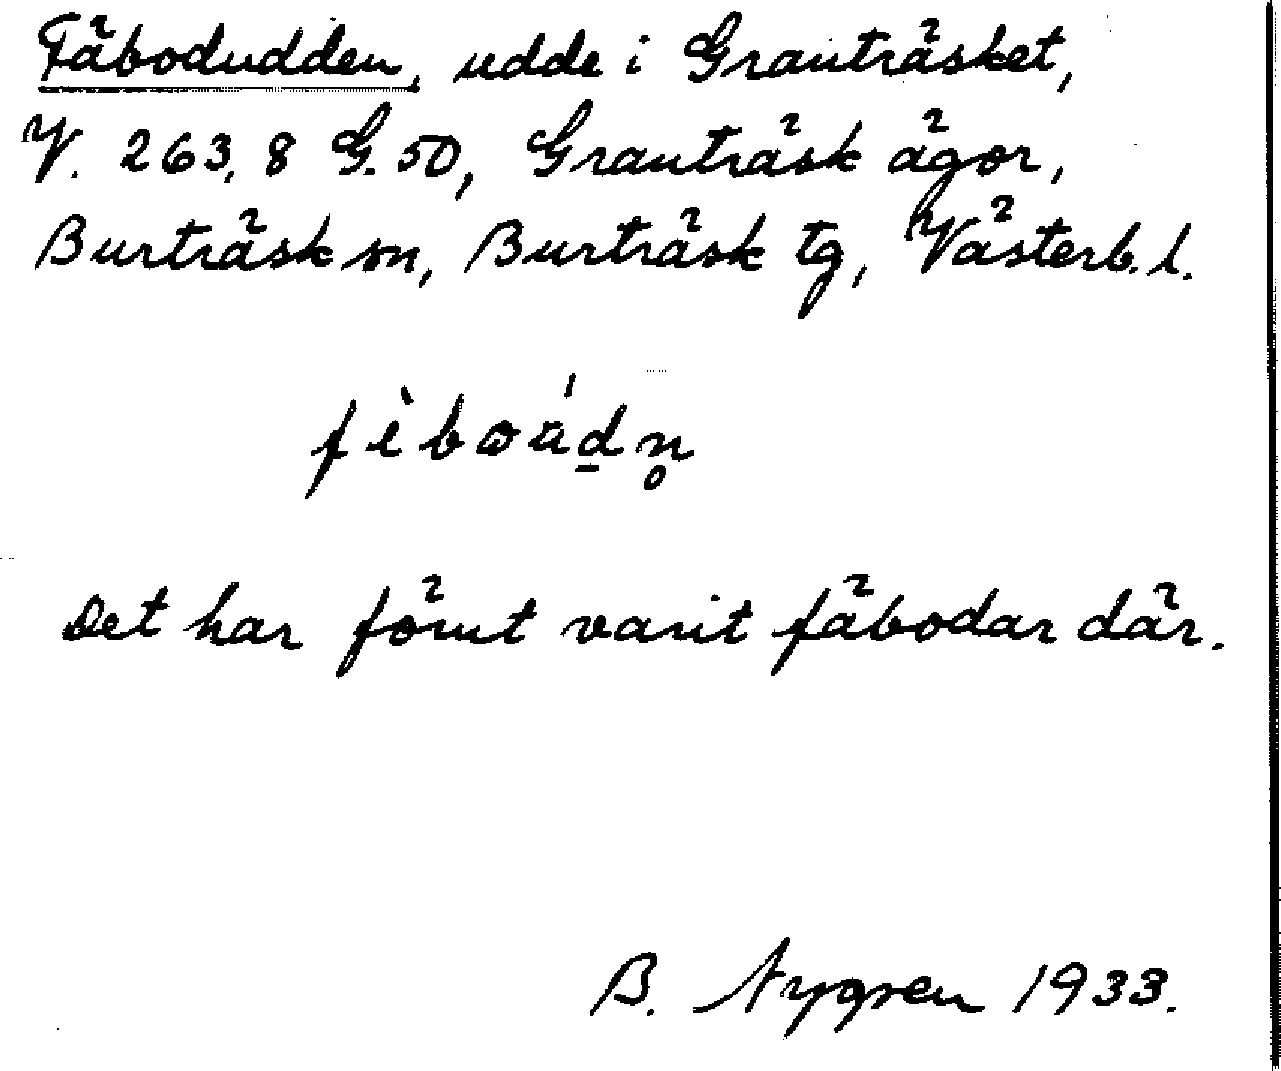 Fäbodudden, udde i Granträsket,
V. 263, 8 G. 50, Granträsk ägor,
Burträsk sn, Burträsk tg, Västerb. l.
fèboádn̥
Det har förut varit fäbodar där.
B. Nygren 1933.